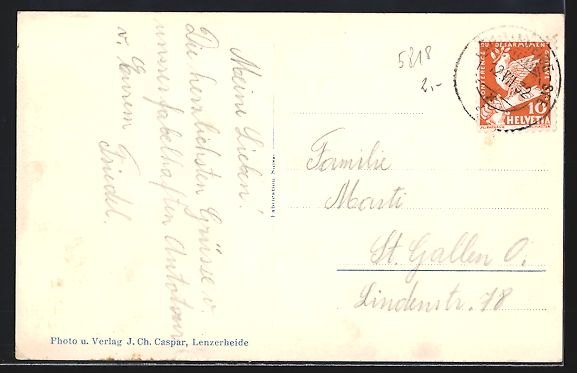 Meine Lieben!
Die herzlichsten Grüsse v.
unserer fabelhaften Autotour
v. Eurem
Friedel.
5818
2,-
DU DESARMEMENT
10
HELVETIA
Familie
Marti
St. Gallen O.
Lindenstr. 78
Photo u. Verlag J. Ch. Caspar, Lenzerheide